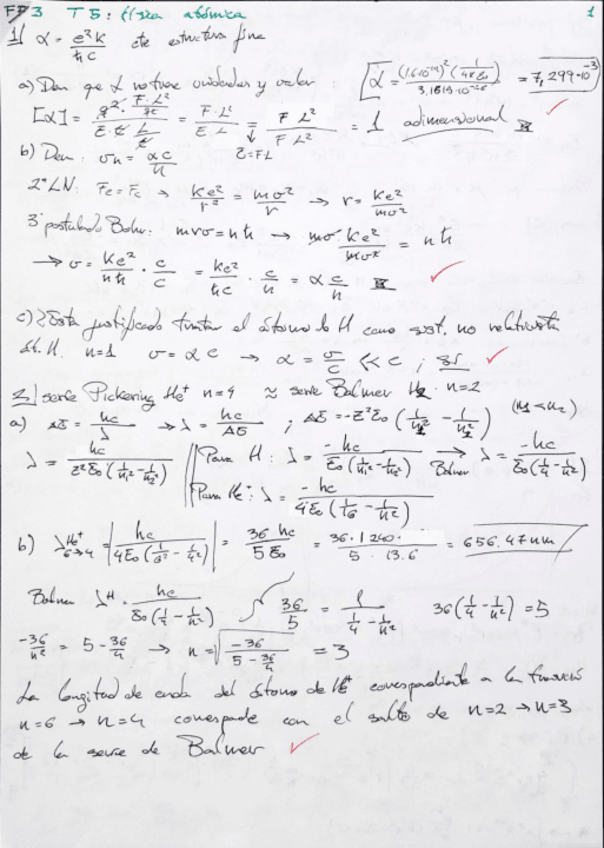 FF3 T5: Física atómica 1
1| α = e²k / ħc cte estructura fina
a) Dem que α no tiene unidades y valor: α = (1.6·10⁻¹⁹)² (1/4πε₀) / 3.1519·10⁻²⁶ = 7,299·10⁻³
[α] = (q² · F·L²/q²) / (E·t · L/t) = F·L² / E·L = F L² / F L² = 1 adimensional
E=FL
b) Dem: vn = αc/n
2ª LN: Fe = Fc → ke²/r² = mv²/r → r = ke²/mv²
3er postulado Bohr: mrv = nħ → mv · ke²/mv² = nħ
→ v = ke²/nħ · c/c = ke²/ħc · c/n = α c/n
c) ¿Está justificado tratar el átomo de H como sist. no relativista
át. H. n=1 v = αc → α = v/c << c ; Sí
2| serie Pickering He⁺ n=4 ≈ serie Balmer H n=2
a) ΔE = hc/λ → λ = hc/ΔE ; ΔE = -Z²E₀ (1/n₂² - 1/n₁²) (n₁<n₂)
λ = hc / Z²E₀(1/n₁² - 1/n₂²) Para H: λ = -hc / E₀(1/n₁² - 1/n₂²) → Balmer λ = -hc / E₀(1/4 - 1/n²)
Para He⁺: λ = -hc / 4E₀(1/16 - 1/n²)
b) λ He⁺ 6→4 = |hc / 4E₀(1/6² - 1/4²)| = 36 hc / 5 E₀ = 36·1240 / 5 · 13.6 = 656.47nm
Balmer λᴴ = hc / E₀(1/4 - 1/n²) 36/5 = 1 / (1/4 - 1/n²) 36(1/4 - 1/n²) = 5
-36/n² = 5 - 36/4 → n = √(-36 / (5 - 36/4)) = 3
La longitud de onda del átomo de He⁺ correspondiente a la transición
n=6 → n=4 corresponde con el salto de n=2 → n=3
de la serie de Balmer